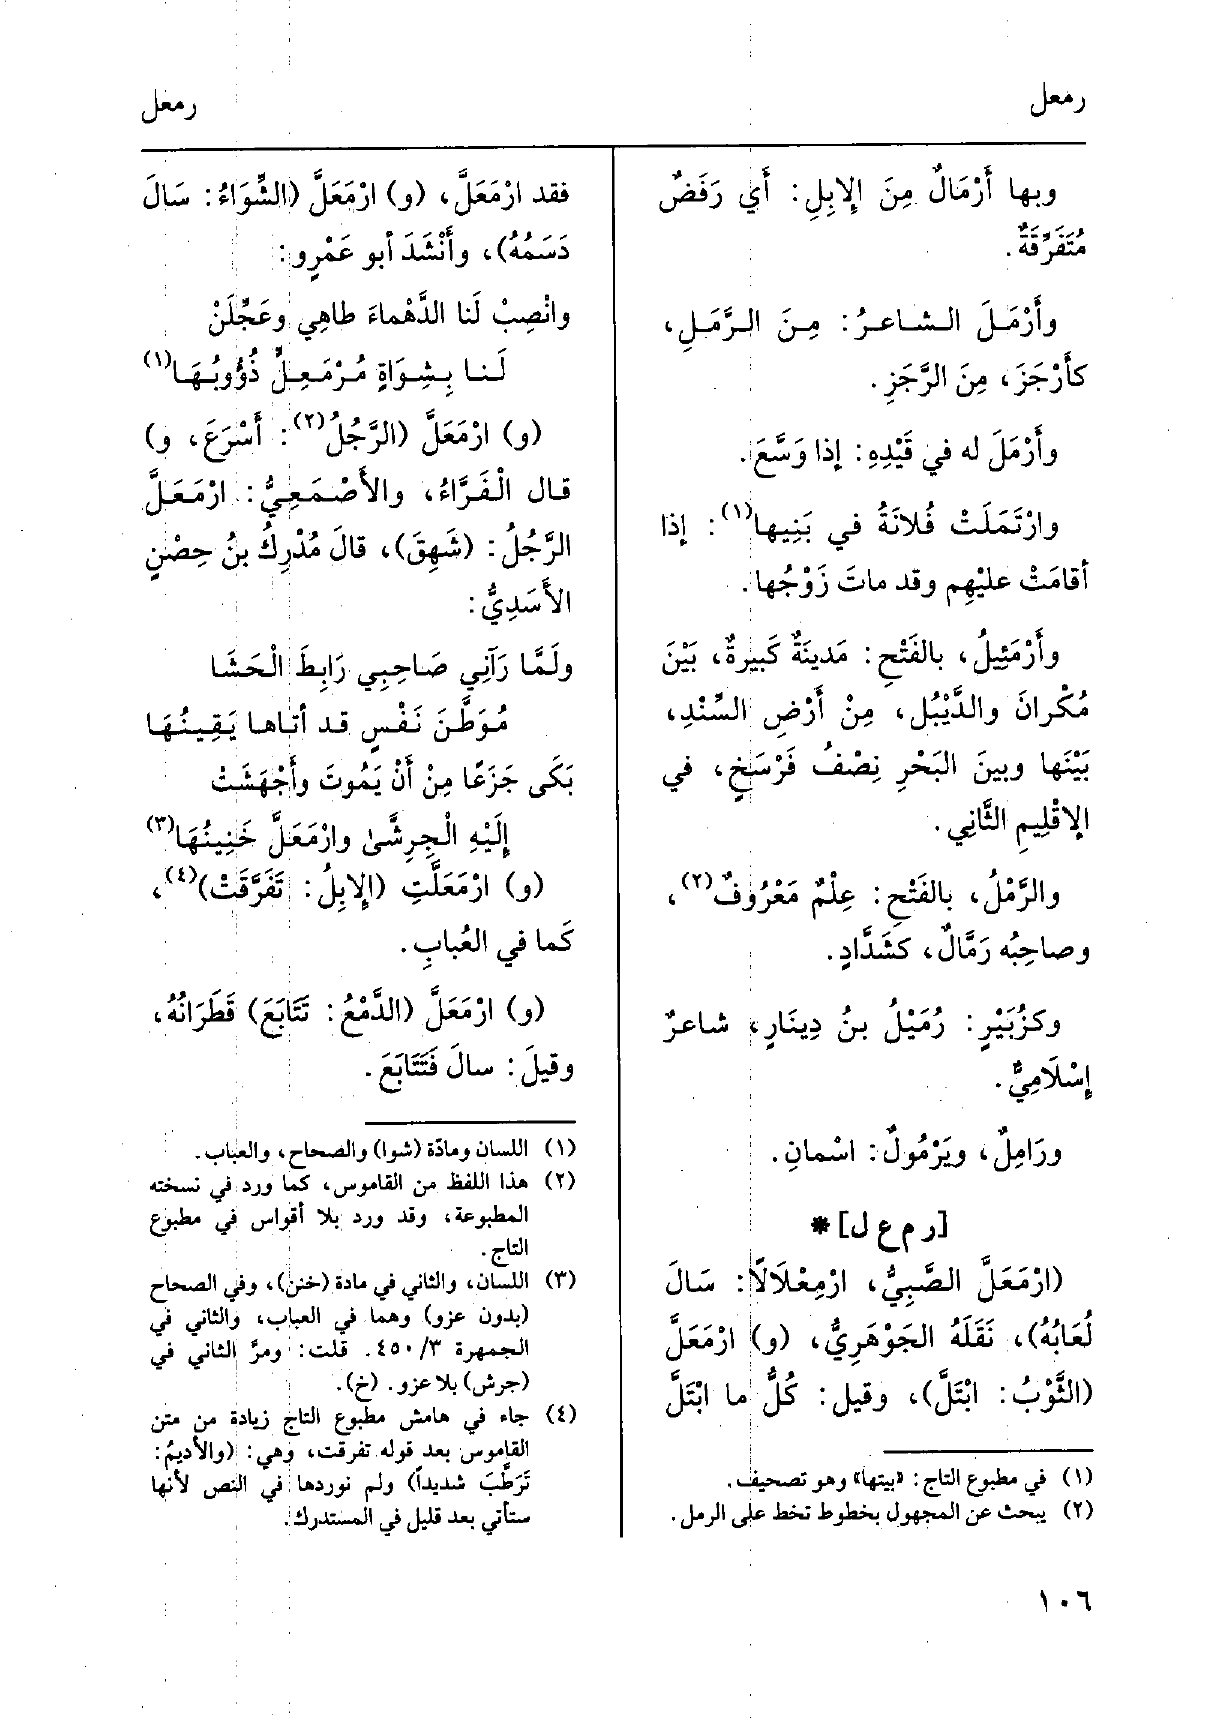 رمعل
رمعل
وبها أَرْمَالٌ مِنَ الإِبِلِ: أَي رَفَضٌ
مُتَفَرِّقَةٌ.
وأَرْمَلَ الشاعرُ: مِنَ الرَّمَلِ،
كأَرْجَزَ، مِنَ الرَّجَزِ.
وأَرْمَلَ له في قَيْدِهِ: إذا وَسَّعَ.
وارْتَمَلَتْ فُلانَةُ في بَنِيها(١): إذا
أقامَتْ عليْهِم وقد ماتَ زَوْجُها.
وأَرْمَئِيلُ، بالفَتْحِ: مَدينَةٌ كَبيرةٌ، بَيْنَ
مُكْرانَ والدَّيْبُل، مِنْ أَرْضِ السِّنْدِ،
بَيْنَها وبينَ البَحْرِ نِصْفُ فَرْسَخٍ، في
الإقْلِيمِ الثَّانِي.
والرَّمْلُ، بالفَتْحِ: عِلْمٌ مَعْرُوفٌ(٢)،
وصاحِبُه رَمَّالٌ، كشَدَّادٍ.
وكزُبَيْرٍ: رُمَيْلُ بنُ دِينَارٍ، شاعرٌ
إسْلَامِيٌّ.
ورَامِلٌ، ويَرْمُولٌ: اسْمانِ.
[ر م ع ل] *
(ارْمَعَلَّ الصَّبِيُّ، ارْمِعْلَالًا: سَالَ
لُعَابُهُ)، نَقَلَهُ الجَوْهَرِيُّ، (و) ارْمَعَلَّ
(الثَّوْبُ: ابْتَلَّ)، وقيل: كُلُّ ما ابْتَلَّ
(١) في مطبوع التاج: «بيتها» وهو تصحيف.
(٢) يبحث عن المجهول بخطوط تخط على الرمل.
فقد ارْمَعَلَّ، (و) ارْمَعَلَّ (الشِّوَاءُ: سَالَ
دَسَمُهُ)، وأَنْشَدَ أبو عَمْرٍو:
وانْصِبْ لَنا الدَّهْماءَ طاهِي وعَجِّلَنْ
لَنا بِشِوَاةٍ مُرْمَعِلٍّ ذُؤُوبُهَا(١)
(و) ارْمَعَلَّ (الرَّجُلُ(٢): أَسْرَعَ، و)
قال الْفَرَّاءُ، والأَصْمَعِيُّ: ارْمَعَلَّ
الرَّجُلُ: (شَهِقَ)، قالَ مُدْرِكُ بنُ حِصْنٍ
الأَسَدِيُّ:
ولَمَّا رَآنِي صَاحِبِي رَابِطَ الْحَشَا
مُوَطَّنَ نَفْسٍ قد أتاها يَقِينُهَا
بَكَى جَزَعًا مِنْ أَنْ يَمُوتَ وأَجْهَشَتْ
إلَيْهِ الْجِرِشَّىٰ وارْمَعَلَّ خَنِينُهَا(٣)
(و) ارْمَعَلَّتِ (الإِبِلُ: تَفَرَّقَتْ)(٤)،
كَما في العُبابِ.
(و) ارْمَعَلَّ (الدَّمْعُ: تَتَابَعَ) قَطَرَانُهُ،
وقيلَ: سالَ فَتَتَابَعَ.
(١) اللسان ومادّة (شوا) والصحاح، والعباب.
(٢) هذا اللفظ من القاموس، كما ورد في نسخته
المطبوعة، وقد ورد بلا أقواس في مطبوع
التاج.
(٣) اللسان، والثاني في مادة (خنن)، وفي الصحاح
(بدون عزو) وهما في العباب، والثاني في
الجمهرة ٤٥٠/٣. قلت: ومرَّ الثاني في
(جرش) بلا عزو. (خ).
(٤) جاء في هامش مطبوع التاج زيادة من متن
القاموس بعد قوله تفرقت، وهي: (والأديمُ:
تَرَطَّبَ شديداً) ولم نوردها في النص لأنها
ستأتي بعد قليل في المستدرك.
١٠٦